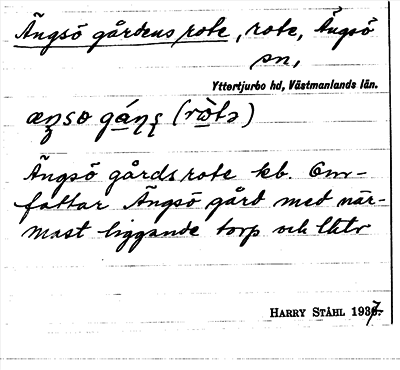 Ängsö gårdens rote, rote, Ängsö
sn,
Yttertjurbo hd, Västmanlands län.
Ängsö gårds rote kb. Om-
fattar Ängsö gård med när-
mast liggande torp och
HARRY STÅHL 1937.